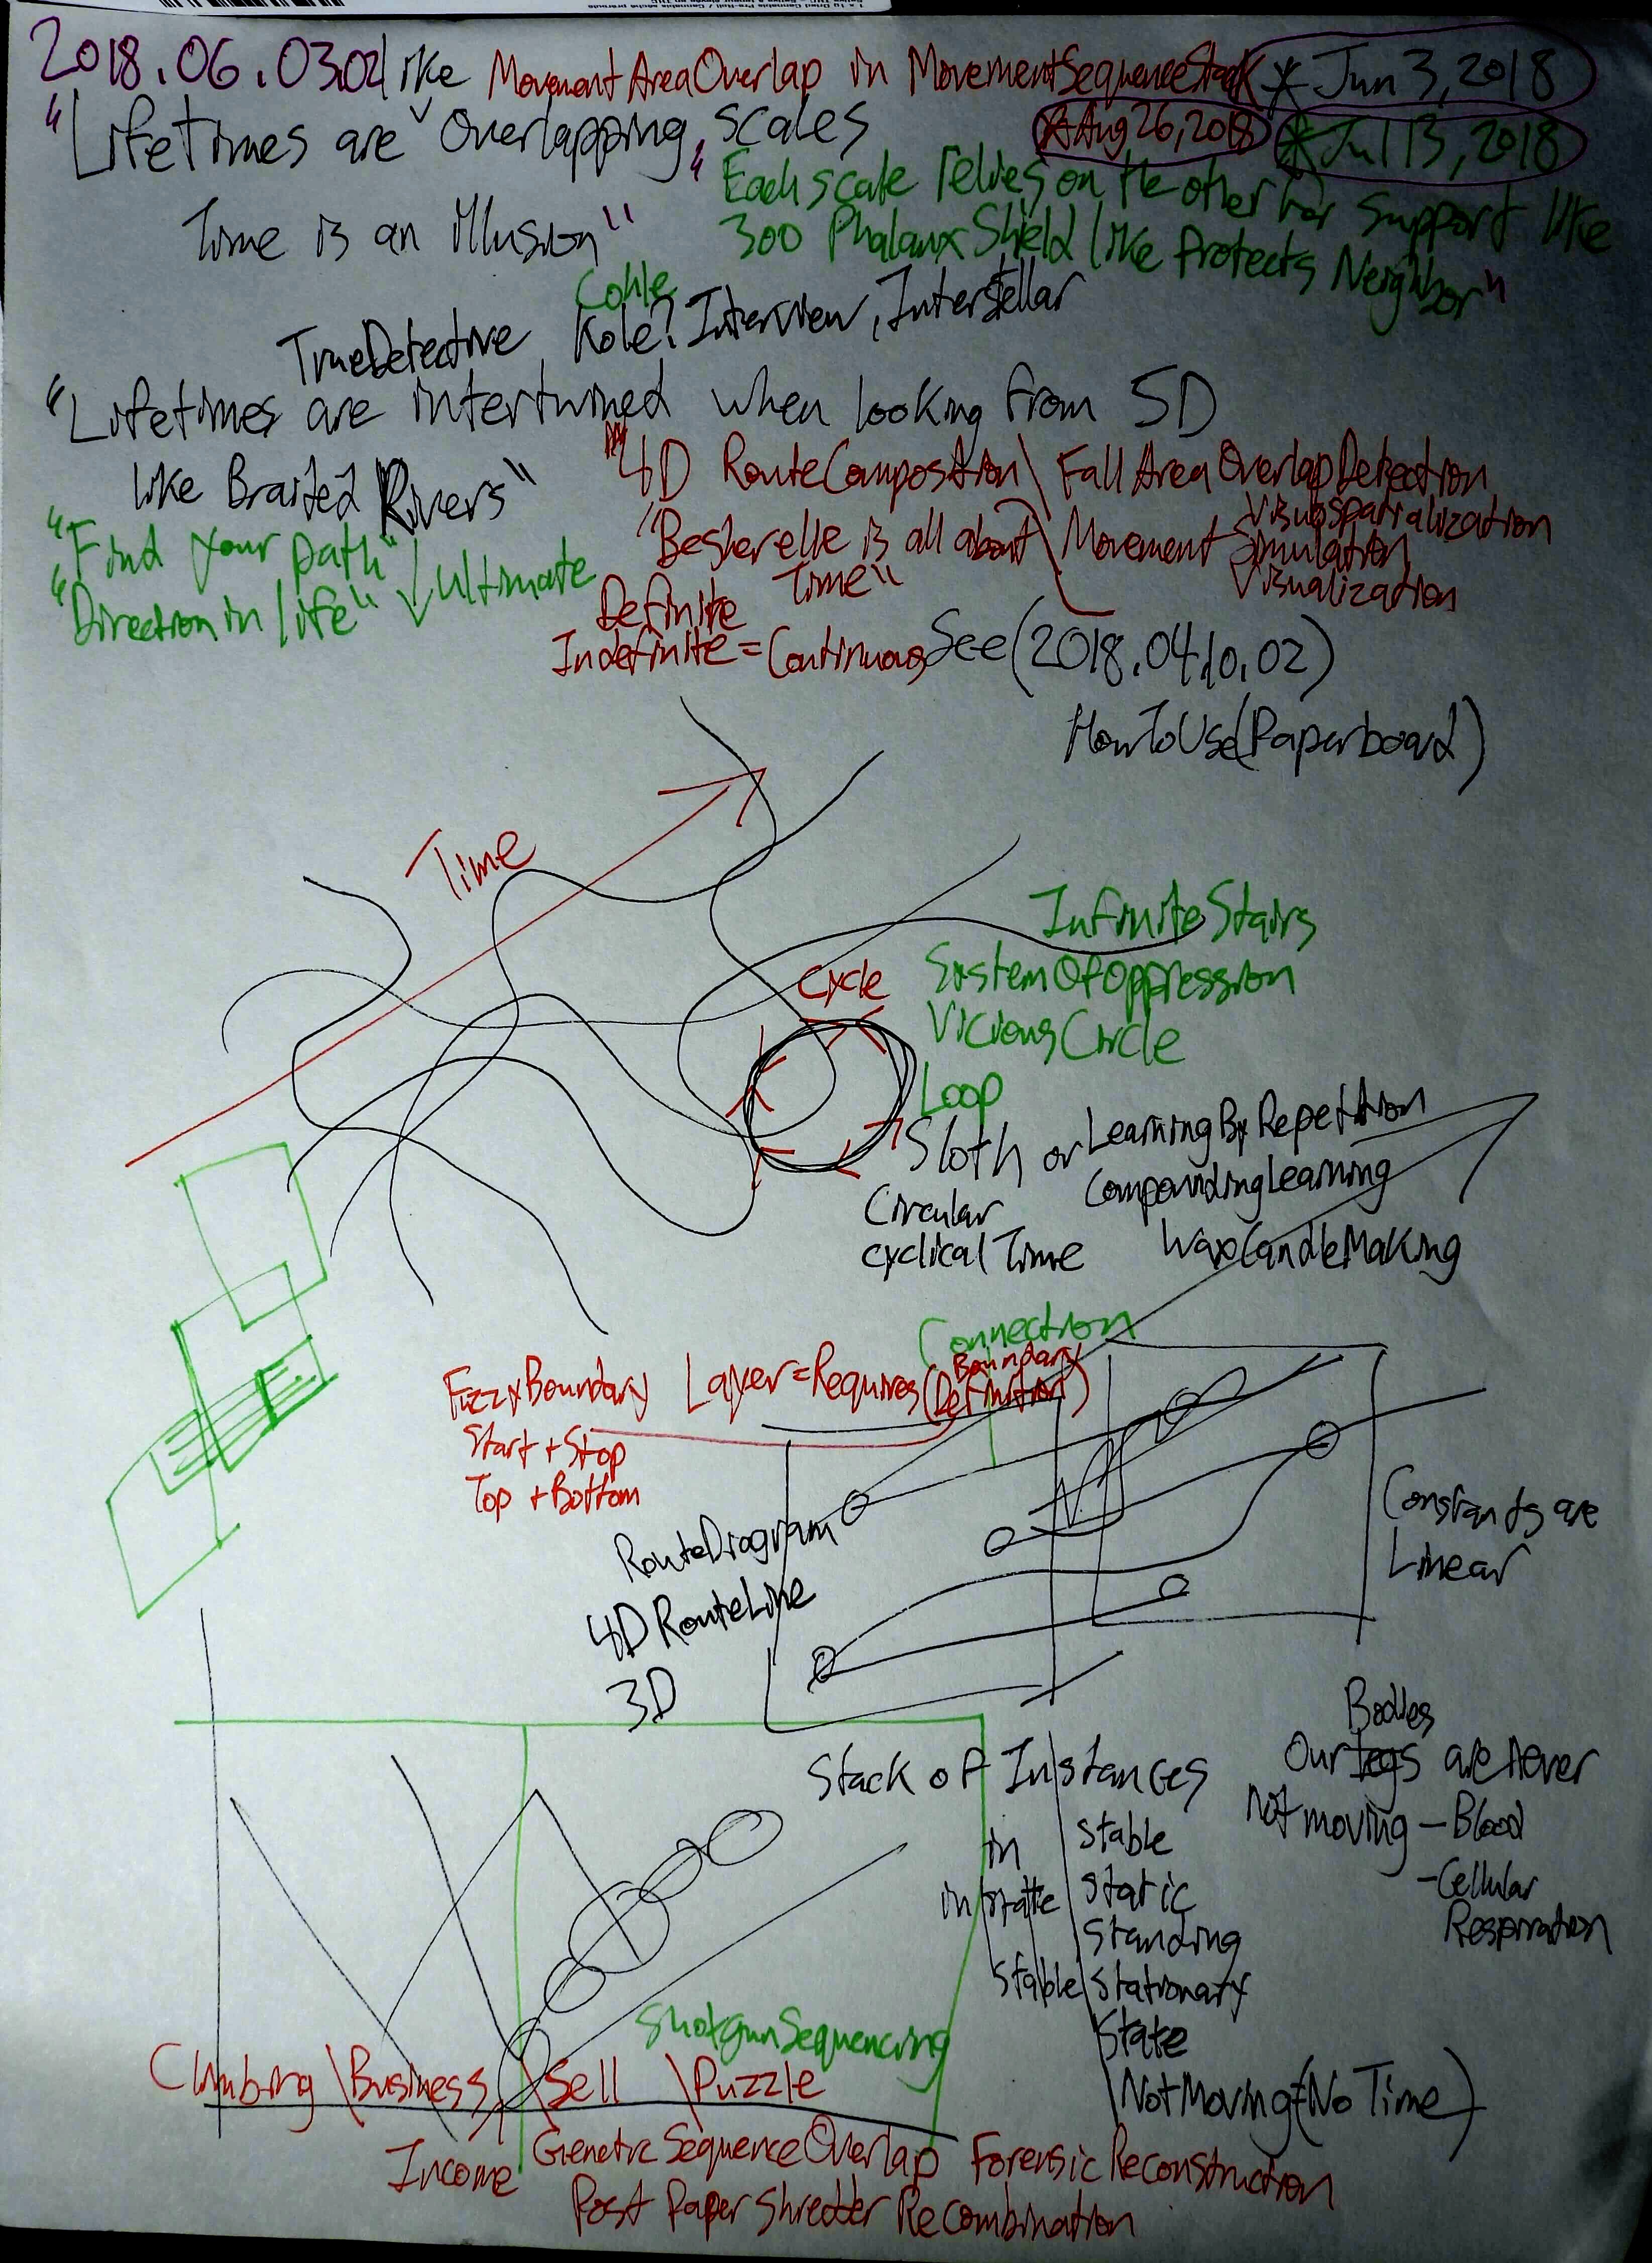 2018.06.03.02 like MovementAreaOverlap in MovementSequenceStack * Jun 3, 2018
"Lifetimes are ˅ Overlapping, scales
*Aug 26, 2018 *Jul 13, 2018
Time is an illusion"
"Each scale relies on the other for support like
300 Phalanx Shield like Protects Neighbor"
Cohle
TrueDetective, Kole? Interview, Interstellar
"Lifetimes are intertwined when looking from 5D
like Braited Rivers"
"4D RouteComposition \ FallAreaOverlapDetection
Visuospatialization
"Besherelle is all about \ Movement Simulation
Time" Visualization
"Find your path"
"Direction in life" ↓ Ultimate
Definite
Indefinite = Continuous See (2018.04.10.02)
HowToUse(Paperboard)
Time
InfiniteStairs
Cycle SystemOfOppression
ViciousCircle
Loop
Sloth or LearningByRepetition
Circular CompoundingLearning
cyclical Time WaxCandleMaking
Connection
Boundary
FuzzyBoundary Layer = Requires (Definition)
Start + Stop
Top + Bottom
RouteDiagram
4D RouteLine
3D
Constants are
Linear
Stack of Instances
in stable
instatic static
standing
stable stationary
State
Not Moving (No Time)
Bodies
Our legs are never
not moving - Blood
- Cellular
Respiration
ShotgunSequencing
Climbing \ Business \ Sell \ Puzzle
Income GeneticSequenceOverlap Forensic Reconstruction
Post Paper Shredder Recombination